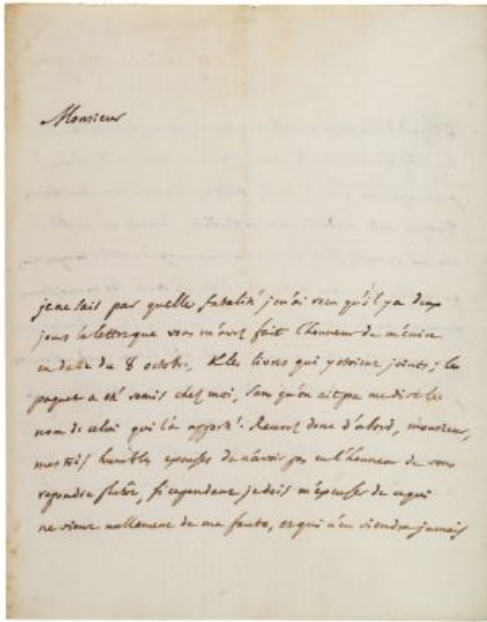 Monsieur
je ne sais par quelle fatalité je n'ai recu qu'il y a deux
jours la lettre que vous m'avez fait l'honneur de m'écrire
en date du 8 octobre, & les livres qui y etoient joints; le
paquet a eté remis chez moi, sans qu'on ait pu me dire le
nom de celui qui l'a apporté. Recevez donc d'abord, monsieur,
mes très humbles excuses de n'avoir pas eu l'honneur de vous
repondre plutôt, si cependant je dois m'excuser de ce qui
ne vient nullement de ma faute, et qui n'en viendra jamais